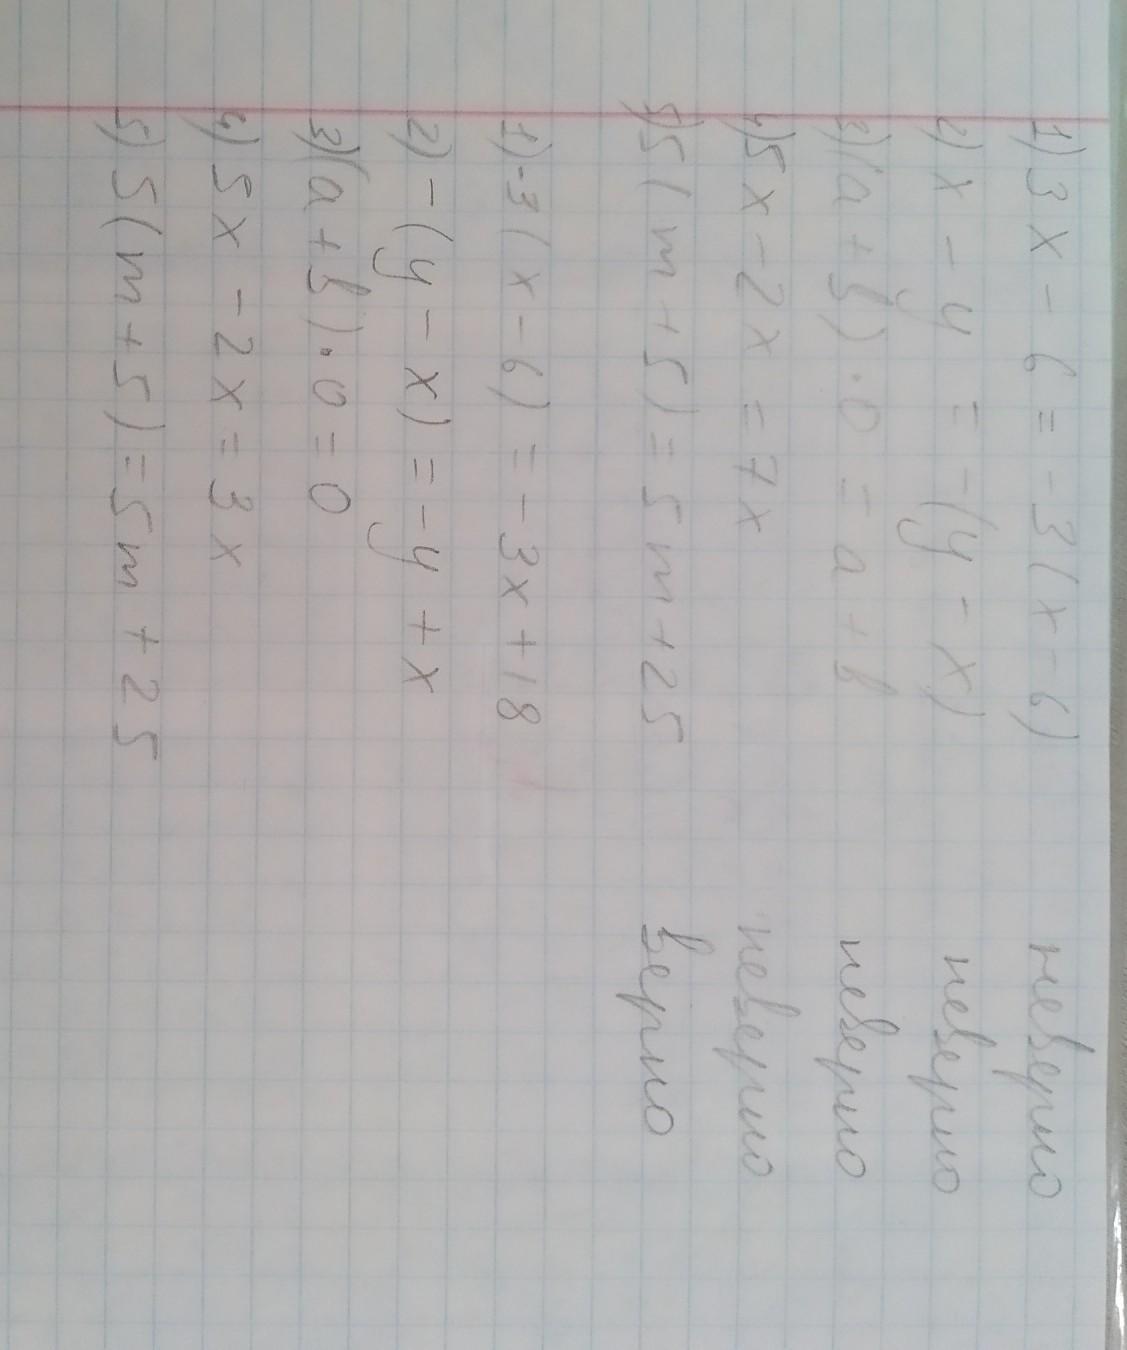 1) 3x - 6 = -3(x - 6) неверно
2) x - y = -(y - x) неверно
3) (a + b) · 0 = a + b неверно
4) 5x - 2x = 7x неверно
5) 5(m + 5) = 5m + 25 верно
1) -3(x - 6) = -3x + 18
2) -(y - x) = -y + x
3) (a + b) · 0 = 0
4) 5x - 2x = 3x
5) 5(m + 5) = 5m + 25